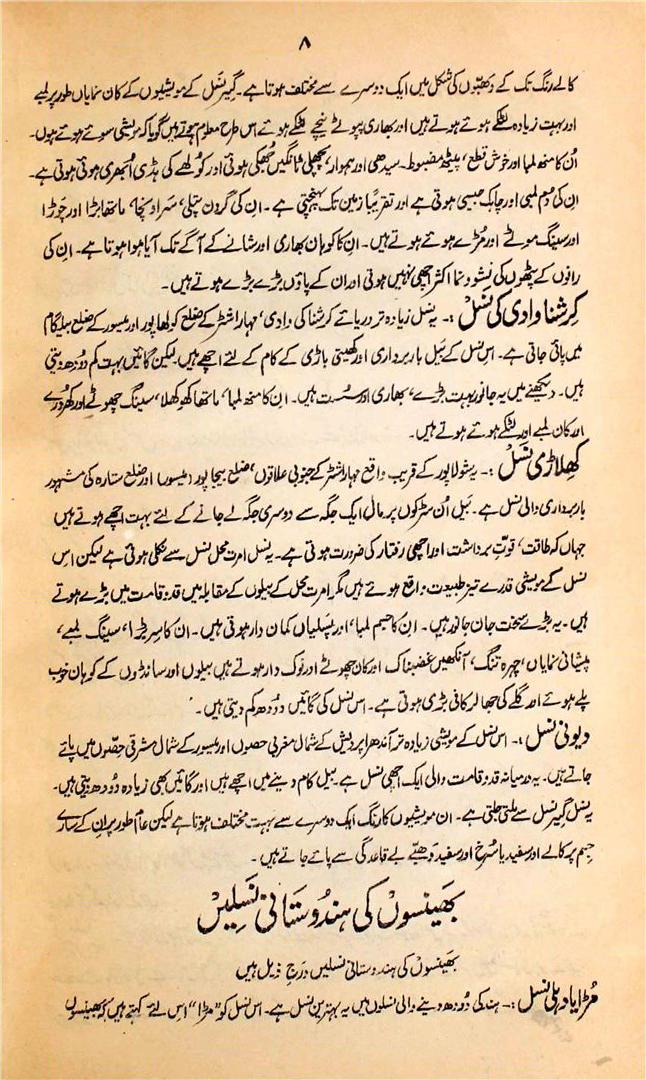 ۸
کالے رنگ تک کے دھبّوں کی شکل میں ایک دوسرے سے مختلف ہوتا ہے۔ گیر نسل کے مویشیوں کے کان نمایاں طور پر لمبے
اور بہت زیادہ لٹکے ہوئے ہوتے ہیں اور بھاری پپوٹے نیچے لٹکے ہوئے اس طرح معلوم ہوتے ہیں گویا کہ مویشی سوئے ہوئے ہوں۔
اُن کا منھ لمبا اور خوش قطع، پیٹھ مضبوط۔ سیدھی اور ہموار، پچھلی ٹانگیں جُھکی ہوتی اور کولھے کی ہڈی اُبھری ہوئی ہوتی ہے۔
ان کی دم لمبی اور چابک جیسی ہوتی ہے اور تقریباً زمین تک پہنچتی ہے۔ ان کی گردن پتلی، سر اونچا، ماتھا بڑا اور چوڑا
اور سینگ موٹے اور مُڑے ہوئے ہوتے ہیں۔ ان کا کوہان بھاری اور شانے کے آگے تک آیا ہوا ہوتا ہے۔ ان کی
رانوں کے پٹھوں کی نشوونما اکثر اچھی نہیں ہوتی اور ان کے پاؤں بڑے بڑے ہوتے ہیں۔
کرشنا وادی کی نسل :۔ یہ نسل زیادہ تر دریائے کرشنا کی وادی، مہاراشٹر کے ضلع کولھاپور اور میسور کے ضلع بیلگام
میں پائی جاتی ہے۔ اس نسل کے بَیل باربرداری اور کھیتی باڑی کے کام کے لئے اچھے ہیں۔ لیکن گائیں بہت کم دودھ دیتی
ہیں۔ دیکھنے میں یہ جانور بہت بڑے، بھاری اور سست ہیں۔ ان کا منھ لمبا، ماتھا کھوکھلا، سینگ چھوٹے اور کھردرے
اور کان لمبے اور لٹکے ہوئے ہوتے ہیں۔
کھلاڑی نسل :۔ یہ شولاپور کے قریب واقع مہاراشٹر کے جنوبی علاقوں، ضلع بیجاپور (میسور) اور ضلع ستارہ کی مشہور
باربرداری والی نسل ہے۔ بَیل اُن سڑکوں پر مال ایک جگہ سے دوسری جگہ لے جانے کے لئے بہت اچھے ہوتے ہیں
جہاں کہ طاقت، قوتِ برداشت اور اچھی رفتار کی ضرورت ہوتی ہے۔ یہ نسل امرت محل نسل سے نکلی ہوئی ہے لیکن اس
نسل کے مویشی قدرے تیز طبیعت واقع ہوئے ہیں مگر امرت محل کے بیلوں کے مقابلہ میں قد و قامت میں بڑے ہوتے
ہیں۔ یہ بڑے سخت جان جانور ہیں۔ ان کا جسم لمبا، اور پسلیاں کمان دار ہوتی ہیں۔ ان کا سر بڑا، سینگ لمبے،
پیشانی نمایاں، چہرہ تنگ، آنکھیں غضبناک اور کان چھوٹے اور نوک دار ہوتے ہیں بیلوں اور سانڈوں کے کوہان خوب
پلے ہوئے اور گلے کی جھالر کافی بڑی ہوتی ہے۔ اس نسل کی گائیں دودھ کم دیتی ہیں۔
دیونی نسل :۔ اس نسل کے مویشی زیادہ تر آندھرا پردیش کے شمال مغربی حصوں اور میسور کے شمال مشرقی حصّوں میں پائے
جاتے ہیں۔ یہ درمیانہ قد و قامت والی ایک اچھی نسل ہے۔ بیل کام دینے میں اچھے ہیں اور گائیں بھی زیادہ دُودھ دیتی ہیں۔
یہ نسل گیر نسل سے ملتی جلتی ہے۔ ان مویشیوں کا رنگ ایک دوسرے سے بہت مختلف ہوتا ہے لیکن عام طور پر ان کے سارے
جسم پر کالے اور سفید یا سُرخ اور سفید دھبّے بے قاعدگی سے پائے جاتے ہیں۔
بھینسوں کی ہندوستانی نسلیں
بھینسوں کی ہندوستانی نسلیں درجِ ذیل ہیں
مُرّا یا دہلی نسل :۔ ہند کی دودھ دینے والی نسلوں میں یہ بہترین نسل ہے۔ اس نسل کو "مرّا" اس لئے کہتے ہیں کہ بھینسوں